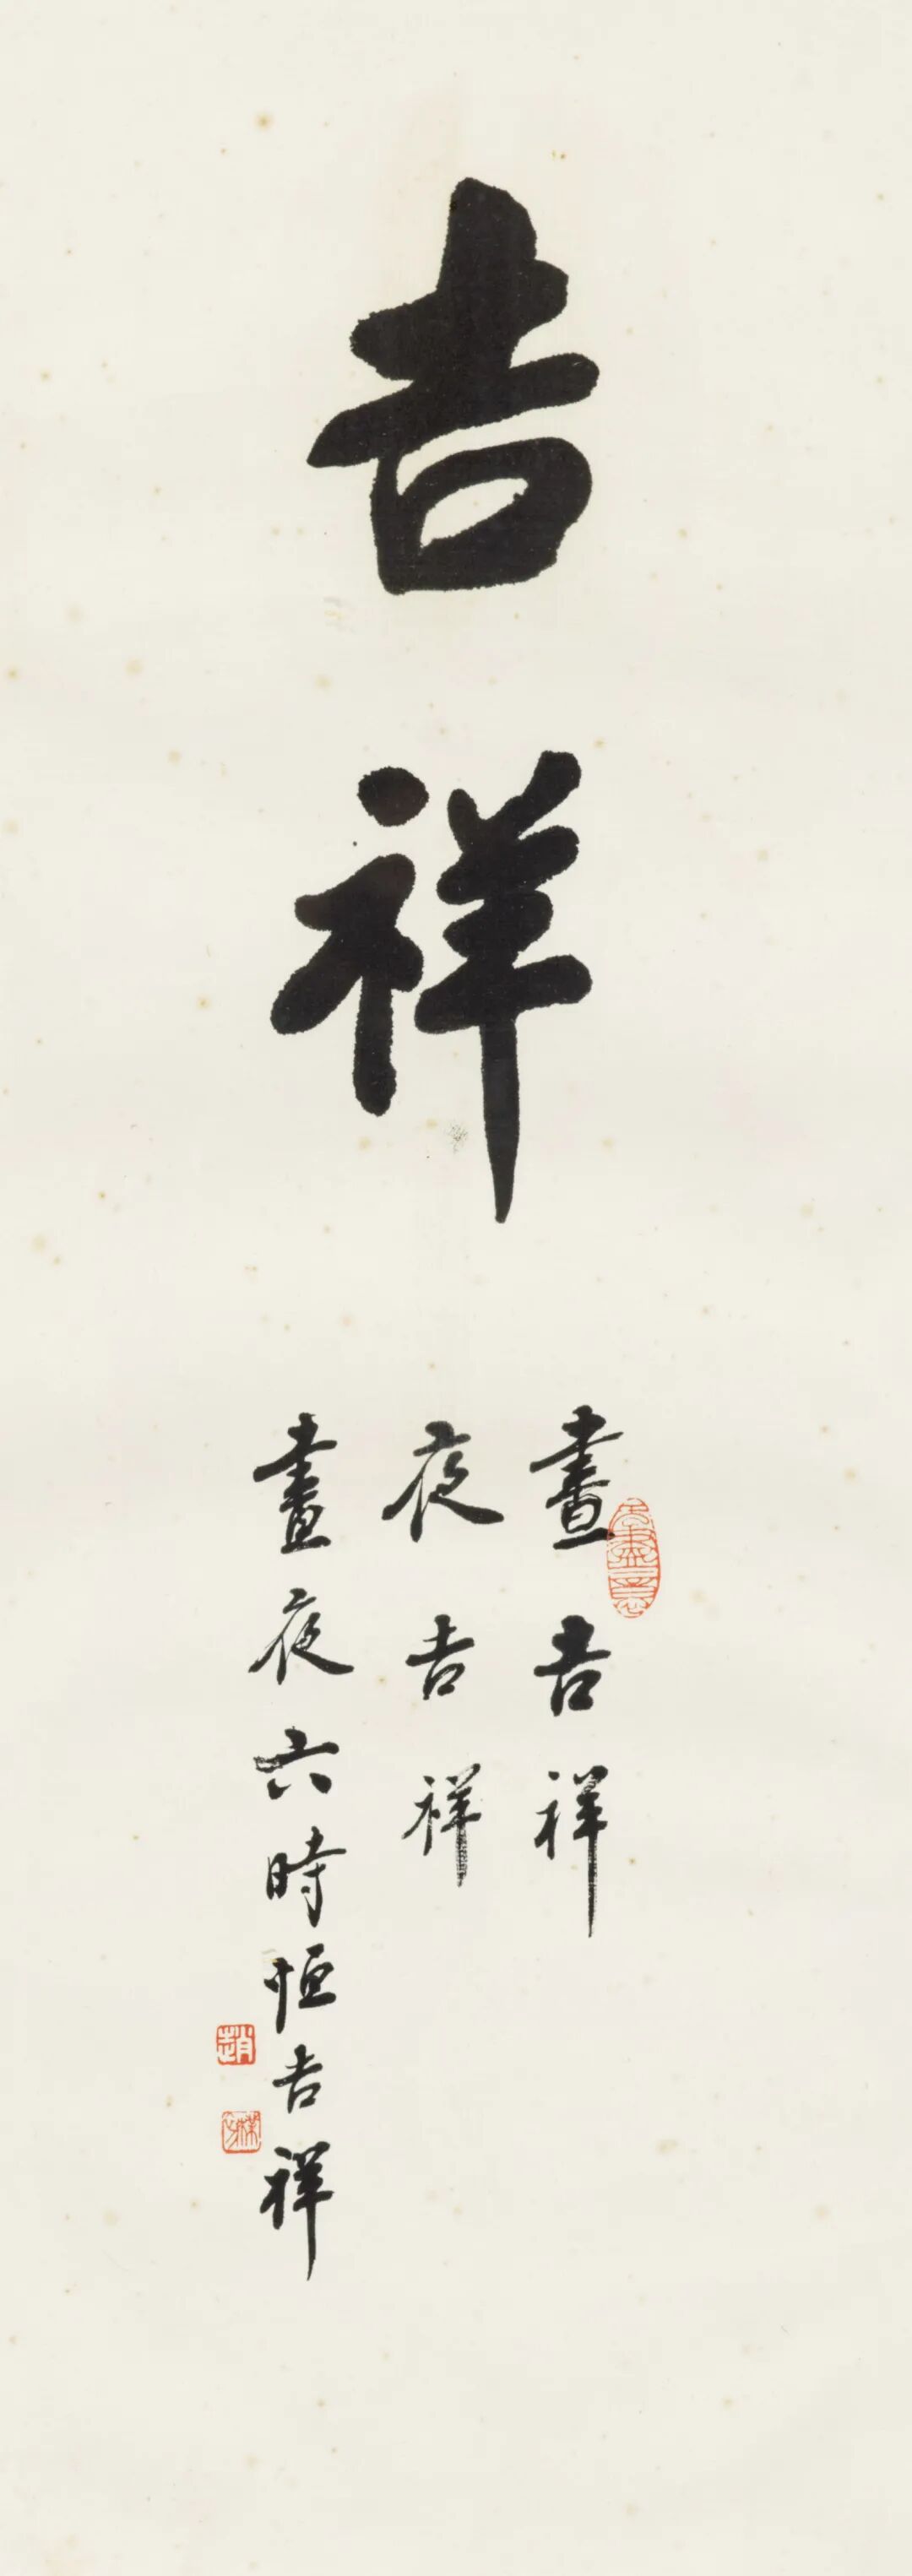 吉祥
晝吉祥
夜吉祥
晝夜六時恒吉祥
趙
樸初